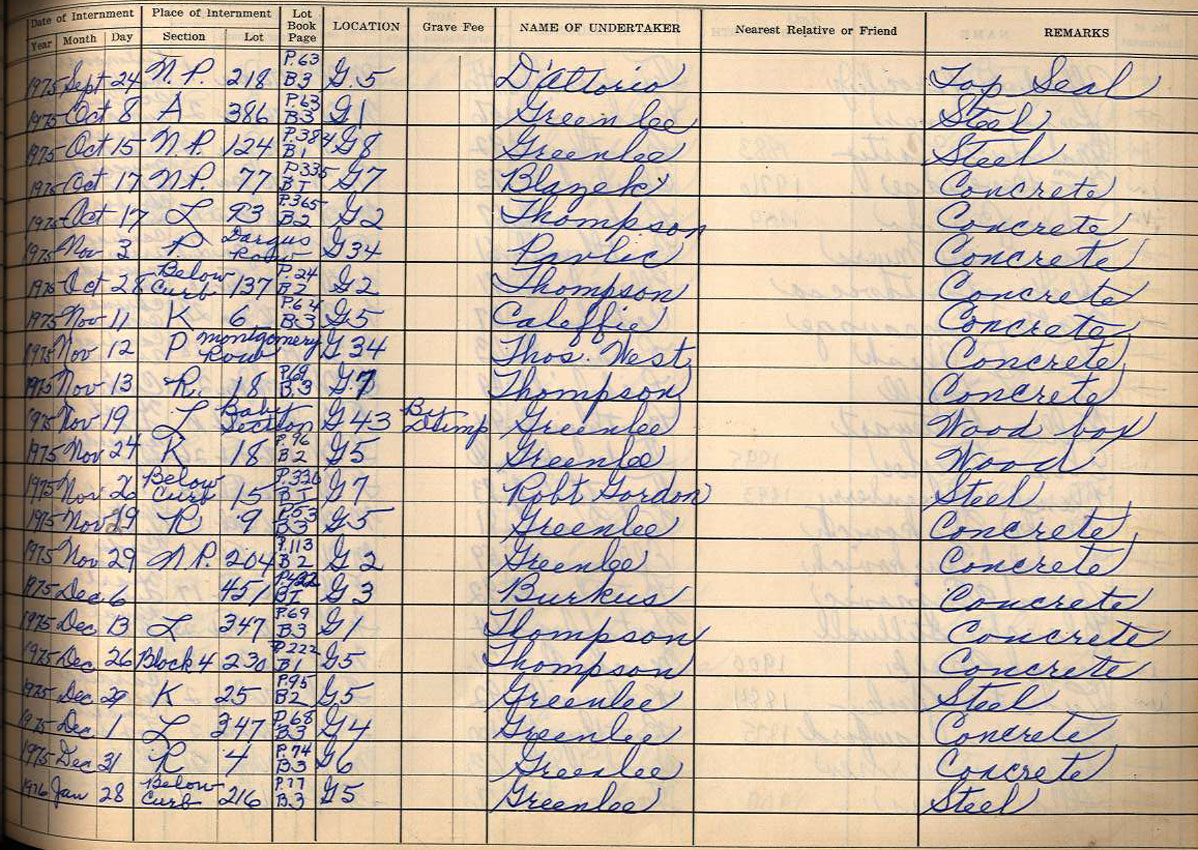 Date of Internment Place of Internment Lot Book Page LOCATION Grave Fee NAME OF UNDERTAKER Nearest Relative or Friend REMARKS
Year Month Day Section Lot
1975 Sept 24 N.P. 218 P.63 B3 G.5 D'Attorio Top Seal
1975 Oct 8 A 386 P.63 B.3 G1 Greenlee Steel
1975 Oct 15 N.P. 124 P.384 B1 G8 Greenlee Steel
1975 Oct 17 N.P. 77 P335 B1 G7 Blazek Concrete
1975 Oct 17 L 93 P.365 B.2 G2 Thompson Concrete
1975 Nov 3 P. Dargus Row G34 Pavlic Concrete
1975 Oct 28 Below Curb 137 P.24 B2 G2 Thompson Concrete
1975 Nov 11 K 6 P.64 B.3 G.5 Caleffie Concrete
1975 Nov 12 P Montgomery Row G34 Thos. West Concrete
1975 Nov 13 R. 18 P.68 B.3 G.7 Thompson Concrete
1975 Nov 19 L Baby Section G43 By Greenlee Wood box
1975 Nov 24 K 18 P.96 B2 G5 Greenlee Wood
1975 Nov 26 Below Curb 15 P.320 B1 G7 Robt Gordon Steel
1975 Nov 29 R 9 P.53 B3 G.5 Greenlee Concrete
1975 Nov 29 N.P. 204 P.113 B2 G2 Greenlee Concrete
1975 Dec. 6 451 P.422 B1 G3 Burkus Concrete
1975 Dec 13 L 347 P.69 B3 G1 Thompson Concrete
1975 Dec 26 Block 4 230 P.222 B1 G5 Thompson Concrete
1975 Dec 29 K 25 P.95 B2 G.5 Greenlee Steel
1975 Dec 1 L 347 P.68 B3 G4 Greenlee Concrete
1975 Dec 31 R 4 P.74 B.3 G6 Greenlee Concrete
1976 Jan 28 Below Curb 216 P.77 B.3 G5 Greenlee Steel